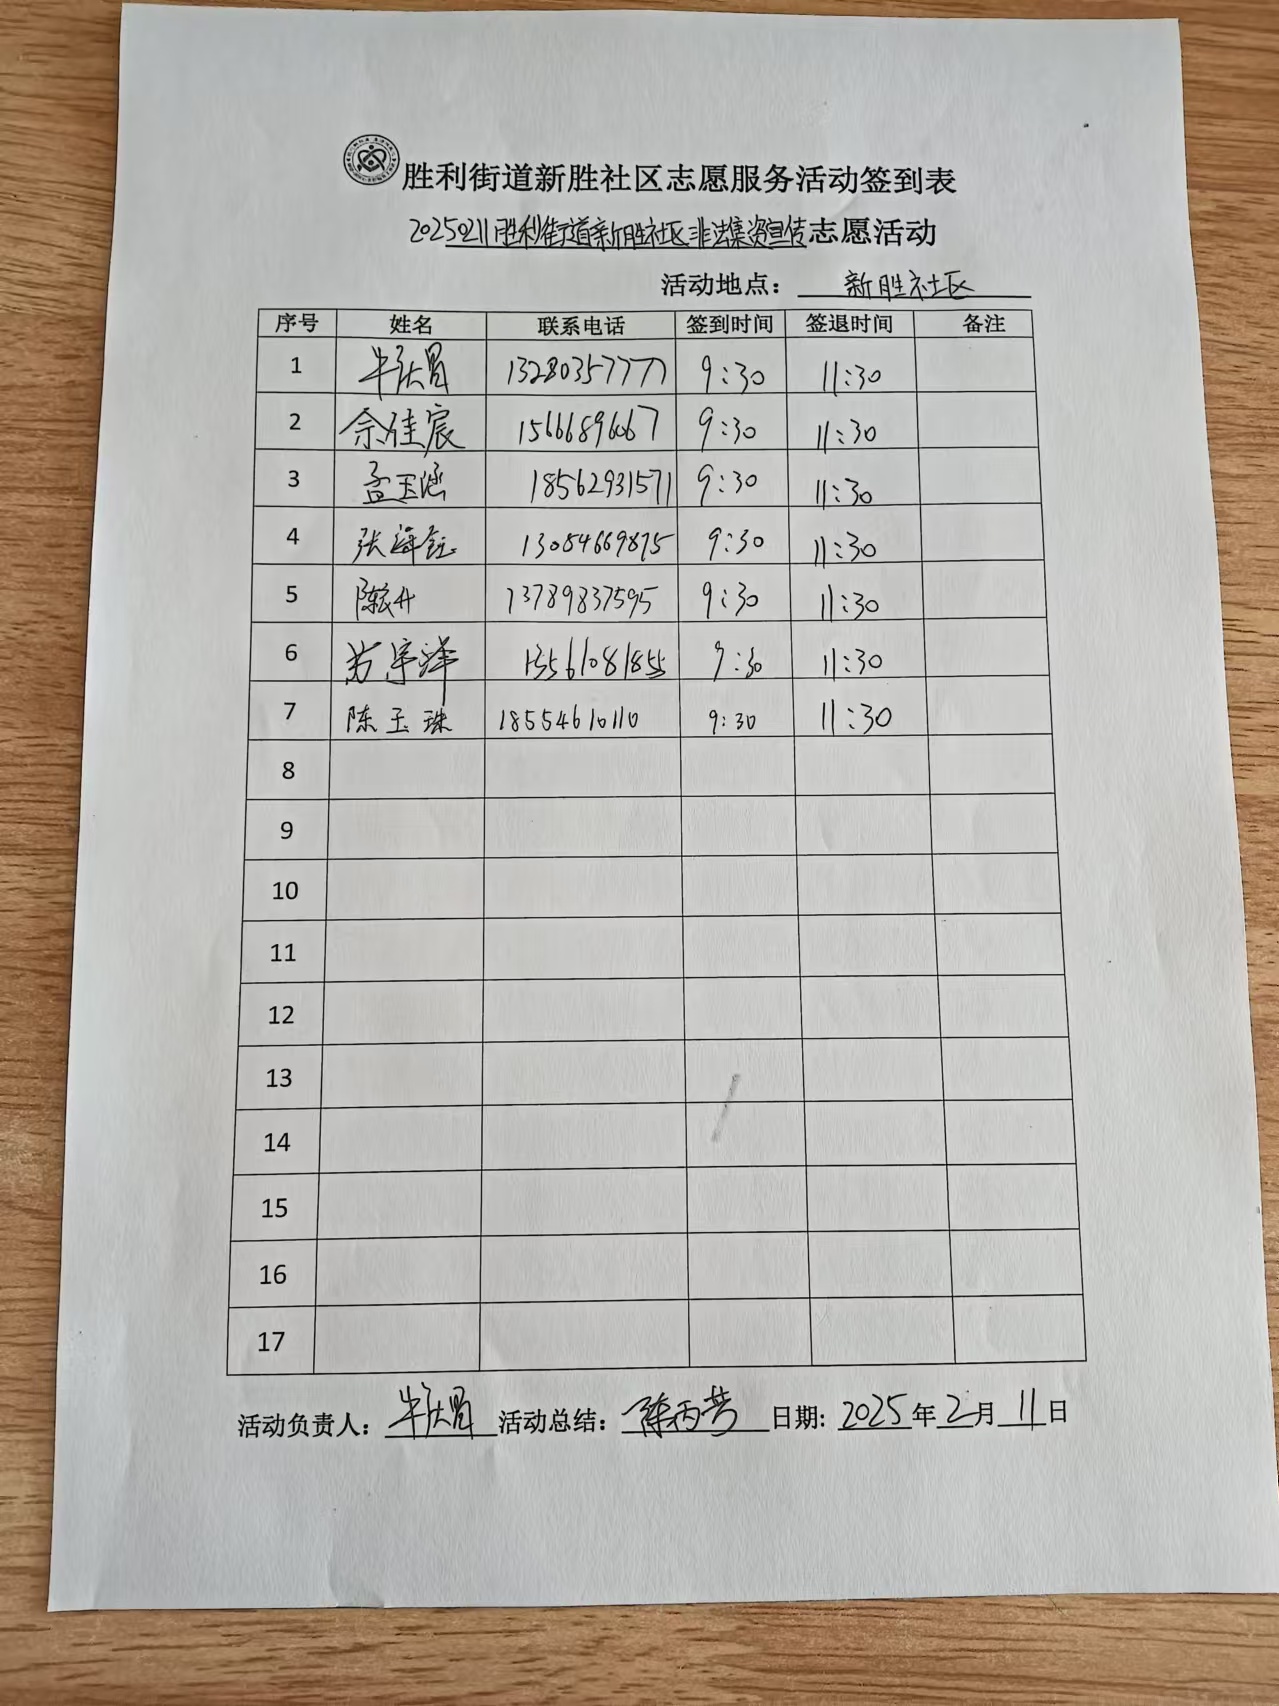 胜利街道新胜社区志愿服务活动签到表
20250211胜利街道新胜社区非法集资宣传志愿活动
活动地点：新胜社区
序号 姓名 联系电话 签到时间 签退时间 备注
1 13280357777 9:30 11:30
2 佘佳宸 15666896067 9:30 11:30
3 孟玉涵 18562931571 9:30 11:30
4 张 13084669875 9:30 11:30
5 13789837595 9:30 11:30
6 13561081855 9:30 11:30
7 陈玉珠 18554610110 9:30 11:30
8
9
10
11
12
13
14
15
16
17
活动负责人： 活动总结：陈丙芳 日期：2025年2月11日